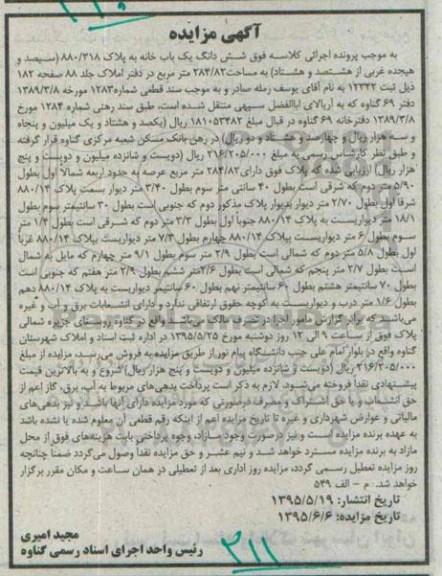 آگهی مزایده
به موجب پرونده اجرائی کلاسه فوق شش دانگ یک باب خانه به پلاک ۸۸۰/۳۱۸ (سیصد و
هیجده غربی از هشتصد و هشتاد) به مساحت۲۸۴/۸۲ متر مربع در دفتر املاک جلد ۸۸ صفحه ۱۸۲
ذیل ثبت ۱۲۳۳۲ به نام آقای یوسف رمله صادر و به موجب سند قطعی شماره۱۲۸۳ مورخه ۱۳۸۹/۳/۸
دفتر ۶۹ گناوه که به آریالای اباالفضل سپهی منتقل شده است، طبق سند رهنی شماره ۱۲۸۴ مورخ
۱۳۸۹/۳/۸ دفترخانه ۶۹ گناوه در قبال مبلغ ۱۸۱۰۵۳۴۸۲ ریال (یکصد و هشتاد و یک میلیون و پنجاه
و سه هزار ریال و چهارصد و هشتاد و دو ریال) در رهن بانک مسکن شعبه مرکزی گناوه قرار گرفته
و طبق نظر کارشناس رسمی به مبلغ ۲۱۶/۲۰۵/۰۰۰ ریال (دویست و شانزده میلیون و دویست و پنج
هزار ریال) ارزیابی شده که پلاک فوق دارای۲۸۴/۸۲ متر مربع عرصه به حدود اربعه شمالاً اول بطول
۵/۹۰ متر دوم که شرقی است بطول ۴۰ سانتی متر سوم بطول ۳/۴۰ متر دیوار بسمت پلاک ۸۸۰/۱۴
شرقا اول بطول ۲/۷۰ متر دیوار بدیوار پلاک مذکور دوم که جنوبی است بطول ۳۰ سانتیمتر سوم بطول
۱۸/۱ متر دیواریست به پلاک ۸۸۰/۱۴ جنوباً اول بطول ۳/۳ متر دوم که شرقی است بطول ۱/۴ متر
سوم بطول ۶ متر دیواریست بپلاک ۸۸۰/۱۴ چهارم بطول ۷/۳ متر دیواریست بپلاک ۸۸۰/۱۴ غرباً
اول بطول ۵/۸ متر دوم که شمالی است بطول ۲/۹ متر سوم بطول ۹/۱ متر چهارم که مایل به شمال
است بطول ۲/۷ متر پنجم که شمالی است بطول ۲/۶متر ششم بطول ۲/۹ متر هفتم که جنوبی است
بطول ۷۰ سانتیمتر هشتم بطول ۶۰ سانتیمتر نهم بطول ۶۰ سانتیمتر دیواریست به پلاک ۸۸۰/۱۴ دهم
بطول ۱/۶ متر درب و دیواریست به کوچه حقوق ارتفاقی ندارد و دارای انشعابات برق و آب و غیره
می‌باشد که برابر گزارش مامور اجرا در تصرف مالک می‌باشد واقع در گناوه روستای جزیره شمالی
پلاک فوق از ساعت ۹ الی ۱۲ روز دوشنبه مورخ ۱۳۹۵/۵/۲۵ در اداره ثبت اسناد و املاک شهرستان
گناوه واقع در بلوار امام علی جنب دانشگاه پیام نور از طریق مزایده به فروش می‌رسد، مزایده از مبلغ
۲۱۶/۲۰۵/۰۰۰ ریال (دویست و شانزده میلیون و دویست و پنج هزار ریال) شروع و به بالاترین قیمت
پیشنهادی نقداً فروخته می‌شود. لازم به ذکر است پرداخت بدهی‌های مربوط به آب، برق، گاز اعم از
حق انشعاب و یا حق اشتراک و مصرف درصورتی که مورد مزایده دارای آنها باشد و نیز بدهی‌های
مالیاتی و عوارض شهرداری و غیره تا تاریخ مزایده اعم از اینکه رقم قطعی آن معلوم شده یا نشده باشد
به عهده برنده مزایده است و نیز درصورت وجود مازاد، وجوه پرداختی بابت هزینه‌های فوق از محل
مازاد به برنده مزایده مسترد خواهد شد و نیم عشر و حق مزایده نقداً وصول می‌گردد ضمناً چنانچه
روز مزایده تعطیل رسمی گردد، مزایده روز اداری بعد از تعطیلی در همان ساعت و مکان مقرر برگزار
خواهد شد. م - الف ۵۴۹
تاریخ انتشار: ۱۳۹۵/۵/۱۹
تاریخ مزایده: ۱۳۹۵/۶/۶
مجید امیری
رئیس واحد اجرای اسناد رسمی گناوه
۳۱۱